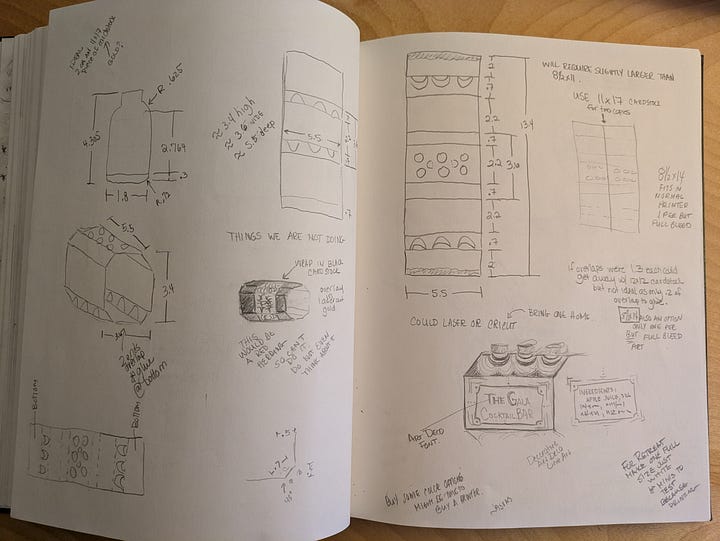 2 ON AN 11X17
PIECE OF
GOLD?
R .625
4.365
2.769
.3
1.8
≈ 3.4 high
≈ 3.6 WIDE
≈ 5.5 deep
5.5
.7
5.5
3.4
THINGS WE ARE NOT DOING
WRAP IN BLACK
CARDSTOCK
overlay
laser cut
gold
THIS
WOULD BE
A RED
HERRING
SO CAN'T
DO IT.
DO NOT EVEN
THINK ABOUT
overlap
& glue
@ bottom
BOTTOM
BOTTOM
.5
45°
2
.7
2.2
.7
2.2
.7
2.2
.7
2
3.6
13.4
5.5
WILL REQUIRE SLIGHTLY LARGER THAN
8½x11.
USE 11x17 CARDSTOCK
for two copies
8½x14
FITS IN
NORMAL
PRINTER
1 PER BUT
FULL BLEED
if overlaps were 1.3 each could
get away w/ 12x12 cardstock
but not ideal as only .2 of
overlap to glue.
ALSO AN OPTION
ONLY ONE PER
BUT FULL BLEED
ART
BRING ONE HOME.
COULD LASER OR CRICUT
THE GALA
COCKTAIL BAR
INGREDIENTS:
APPLE JUICE,
ART DECO
FONT.
Decorative
Art Deco
Line Art
BUY SOME COLOR OPTIONS
MIGHT BE TIME TO
BUY A PRINTER.
FOR RETREAT
MAKE ONE FULL
SIZE JUST
WHITE
TEST
BECAUSE
DRINKING